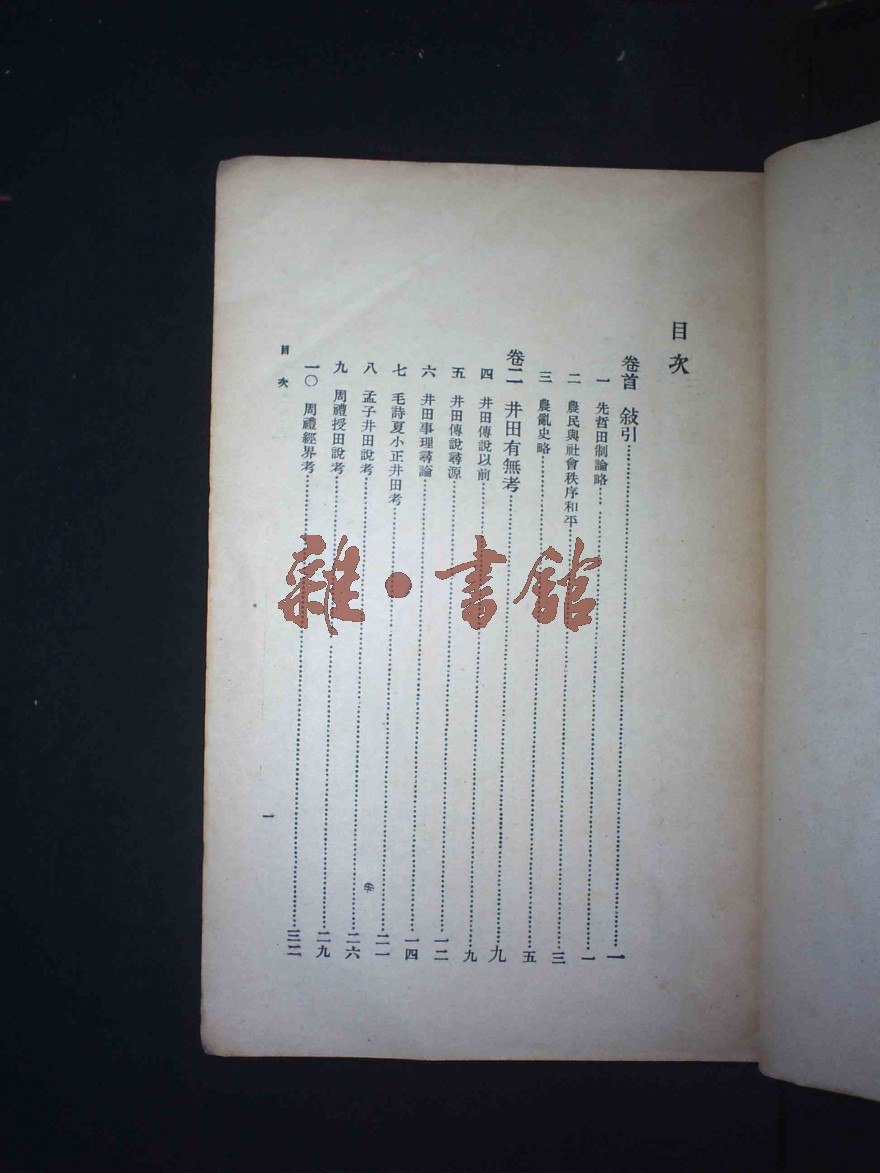 目次
卷首 敍引…………一
一 先哲田制論略…………一
二 農民與社會秩序和平…………三
三 農亂史略…………五
卷二 井田有無考…………九
四 井田傳說以前…………九
五 井田傳說尋源…………一二
六 井田事理尋論…………一四
七 毛詩夏小正井田考…………二一
八 孟子井田說考…………二六
九 周禮授田說考…………二九
一〇 周禮經界考…………三二
目次
一
雜·書館